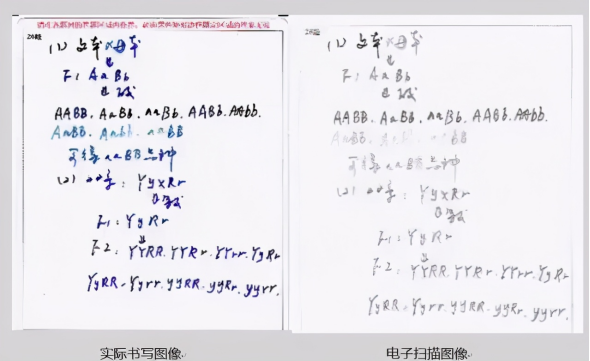 请在各题目的答题区域内作答，超出黑色矩形边框限定区域的答案无效
26题
(1) 父本×母本
↓
F1 AaBb
↓
AABB. AaBb. aaBb. AABb. AAbb.
AaBB. Aabb. aaBB
可得 aaBB 品种
(2) : YyXRr
↓
F1: YyRr
↓
F2: YYRR. YYRr. YYrr. YyRr
YyRR. Yyrr. yyRR. yyRr. yyrr.
(1) 父本×母本
↓
F1 AaBb
↓
AABB. AaBb. aaBb. AABb. AAbb.
AaBB. Aabb. aaBB
可得 aaBB 品种
(2) : YyXRr
F1: YyRr
↓
F2: YYRR. YYRr. YYrr. YyRr
YyRR. Yyrr. yyRR. yyRr. yyrr.
实际书写图像
电子扫描图像